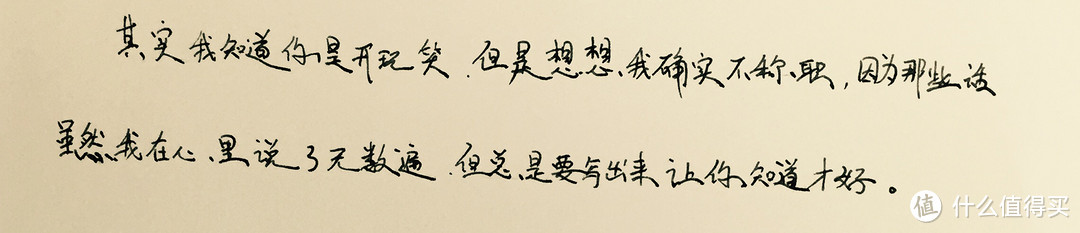 其实我知道你是开玩笑.但是想想,我确实不称职,因为那些话
虽然我在心里说了无数遍.但总是要写出来让你知道才好。
值 什么值得买